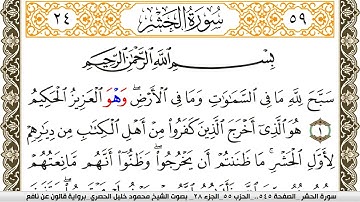 ٥٩ سُورَةُ الْحَشْرِ ٢٤
بِسْمِ اللَّهِ الرَّحْمَٰنِ الرَّحِيمِ
سَبَّحَ لِلَّهِ مَا فِي السَّمَٰوَٰتِ وَمَا فِي الْأَرْضِ وَهْوَ الْعَزِيزُ الْحَكِيمُ
١ هُوَ الَّذِي أَخْرَجَ الَّذِينَ كَفَرُوا مِنْ أَهْلِ الْكِتَٰبِ مِن دِيٰرِهِمْ
لِأَوَّلِ الْحَشْرِ مَا ظَنَنتُمْ أَن يَخْرُجُوا وَظَنُّوا أَنَّهُم مَّانِعَتُهُمْ
سورة الحشر _ الصفحة ٥٤٥_ الحزب ٥٥_ الجزء ٢٨_ بصوت الشيخ محمود خليل الحصري برواية قالون عن نافع